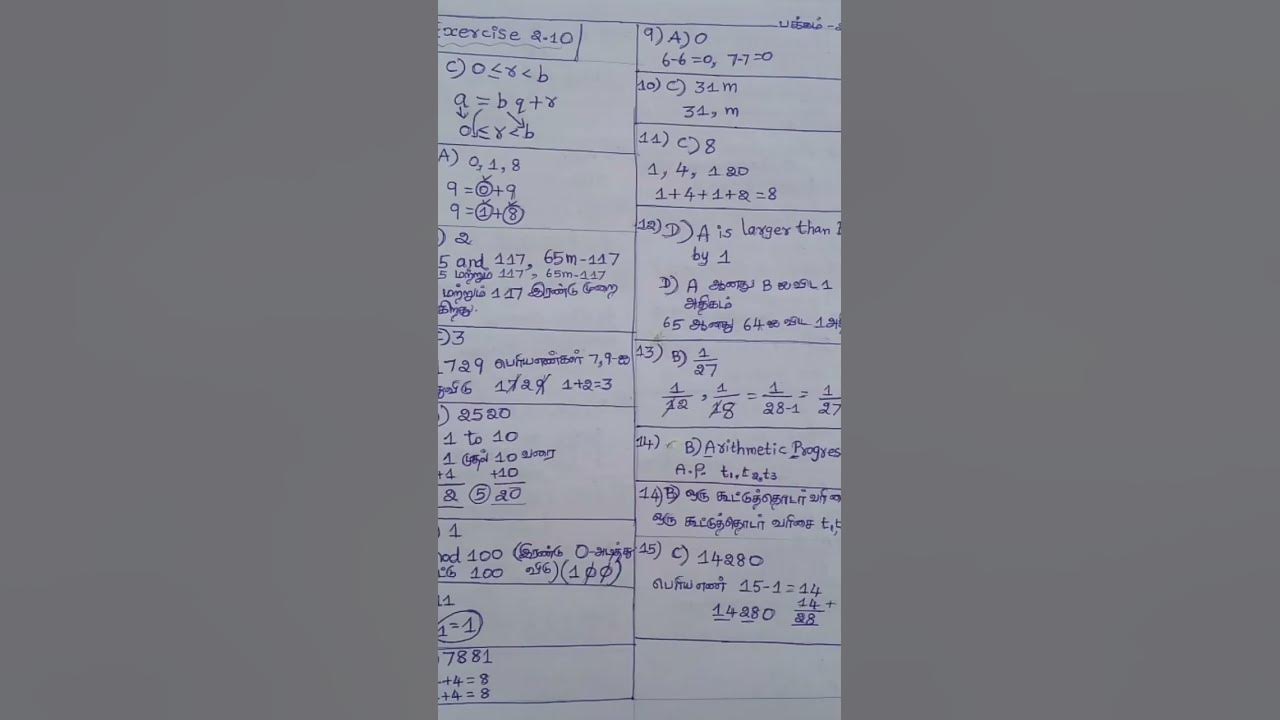 பக்கம் -
Exercise 2.10
C) 0≤r<b
a = bq+r
0≤r<b
A) 0,1,8
9=0+9
9=1+8
) 2
5 and 117, 65m-117
5 மற்றும் 117, 65m-117
மற்றும் 117 இரண்டு முறை
கிறது.
C)3
1729 பெரியஎண்கள் 7,9-ஐ
துவிடு 1729 1+2=3
) 2520
1 to 10
1 முதல் 10 வரை
+1 +10
2 5 20
) 1
mod 100 (இரண்டு 0-அடித்து
ட்டு 100 விடு) (100)
11
1=1
7881
+4=8
+4=8
9) A) 0
6-6=0, 7-7=0
10) C) 31m
31, m
11) C) 8
1, 4, 120
1+4+1+2=8
12) D) A is larger than
by 1
D) A ஆனது B ஐ விட 1
அதிகம்
65 ஆனது 64 ஐ விட 1 அ
13) B) 1/27
1/12, 1/18 = 1/28-1 = 1/27
14) B) Arithmetic Progres
A.P. t₁,t₂,t₃
14) B) ஒரு கூட்டுத்தொடர் வரி
ஒரு கூட்டுத்தொடர் வரிசை t₁,t
15) C) 14280
பெரியஎண் 15-1=14
14280 14+
28